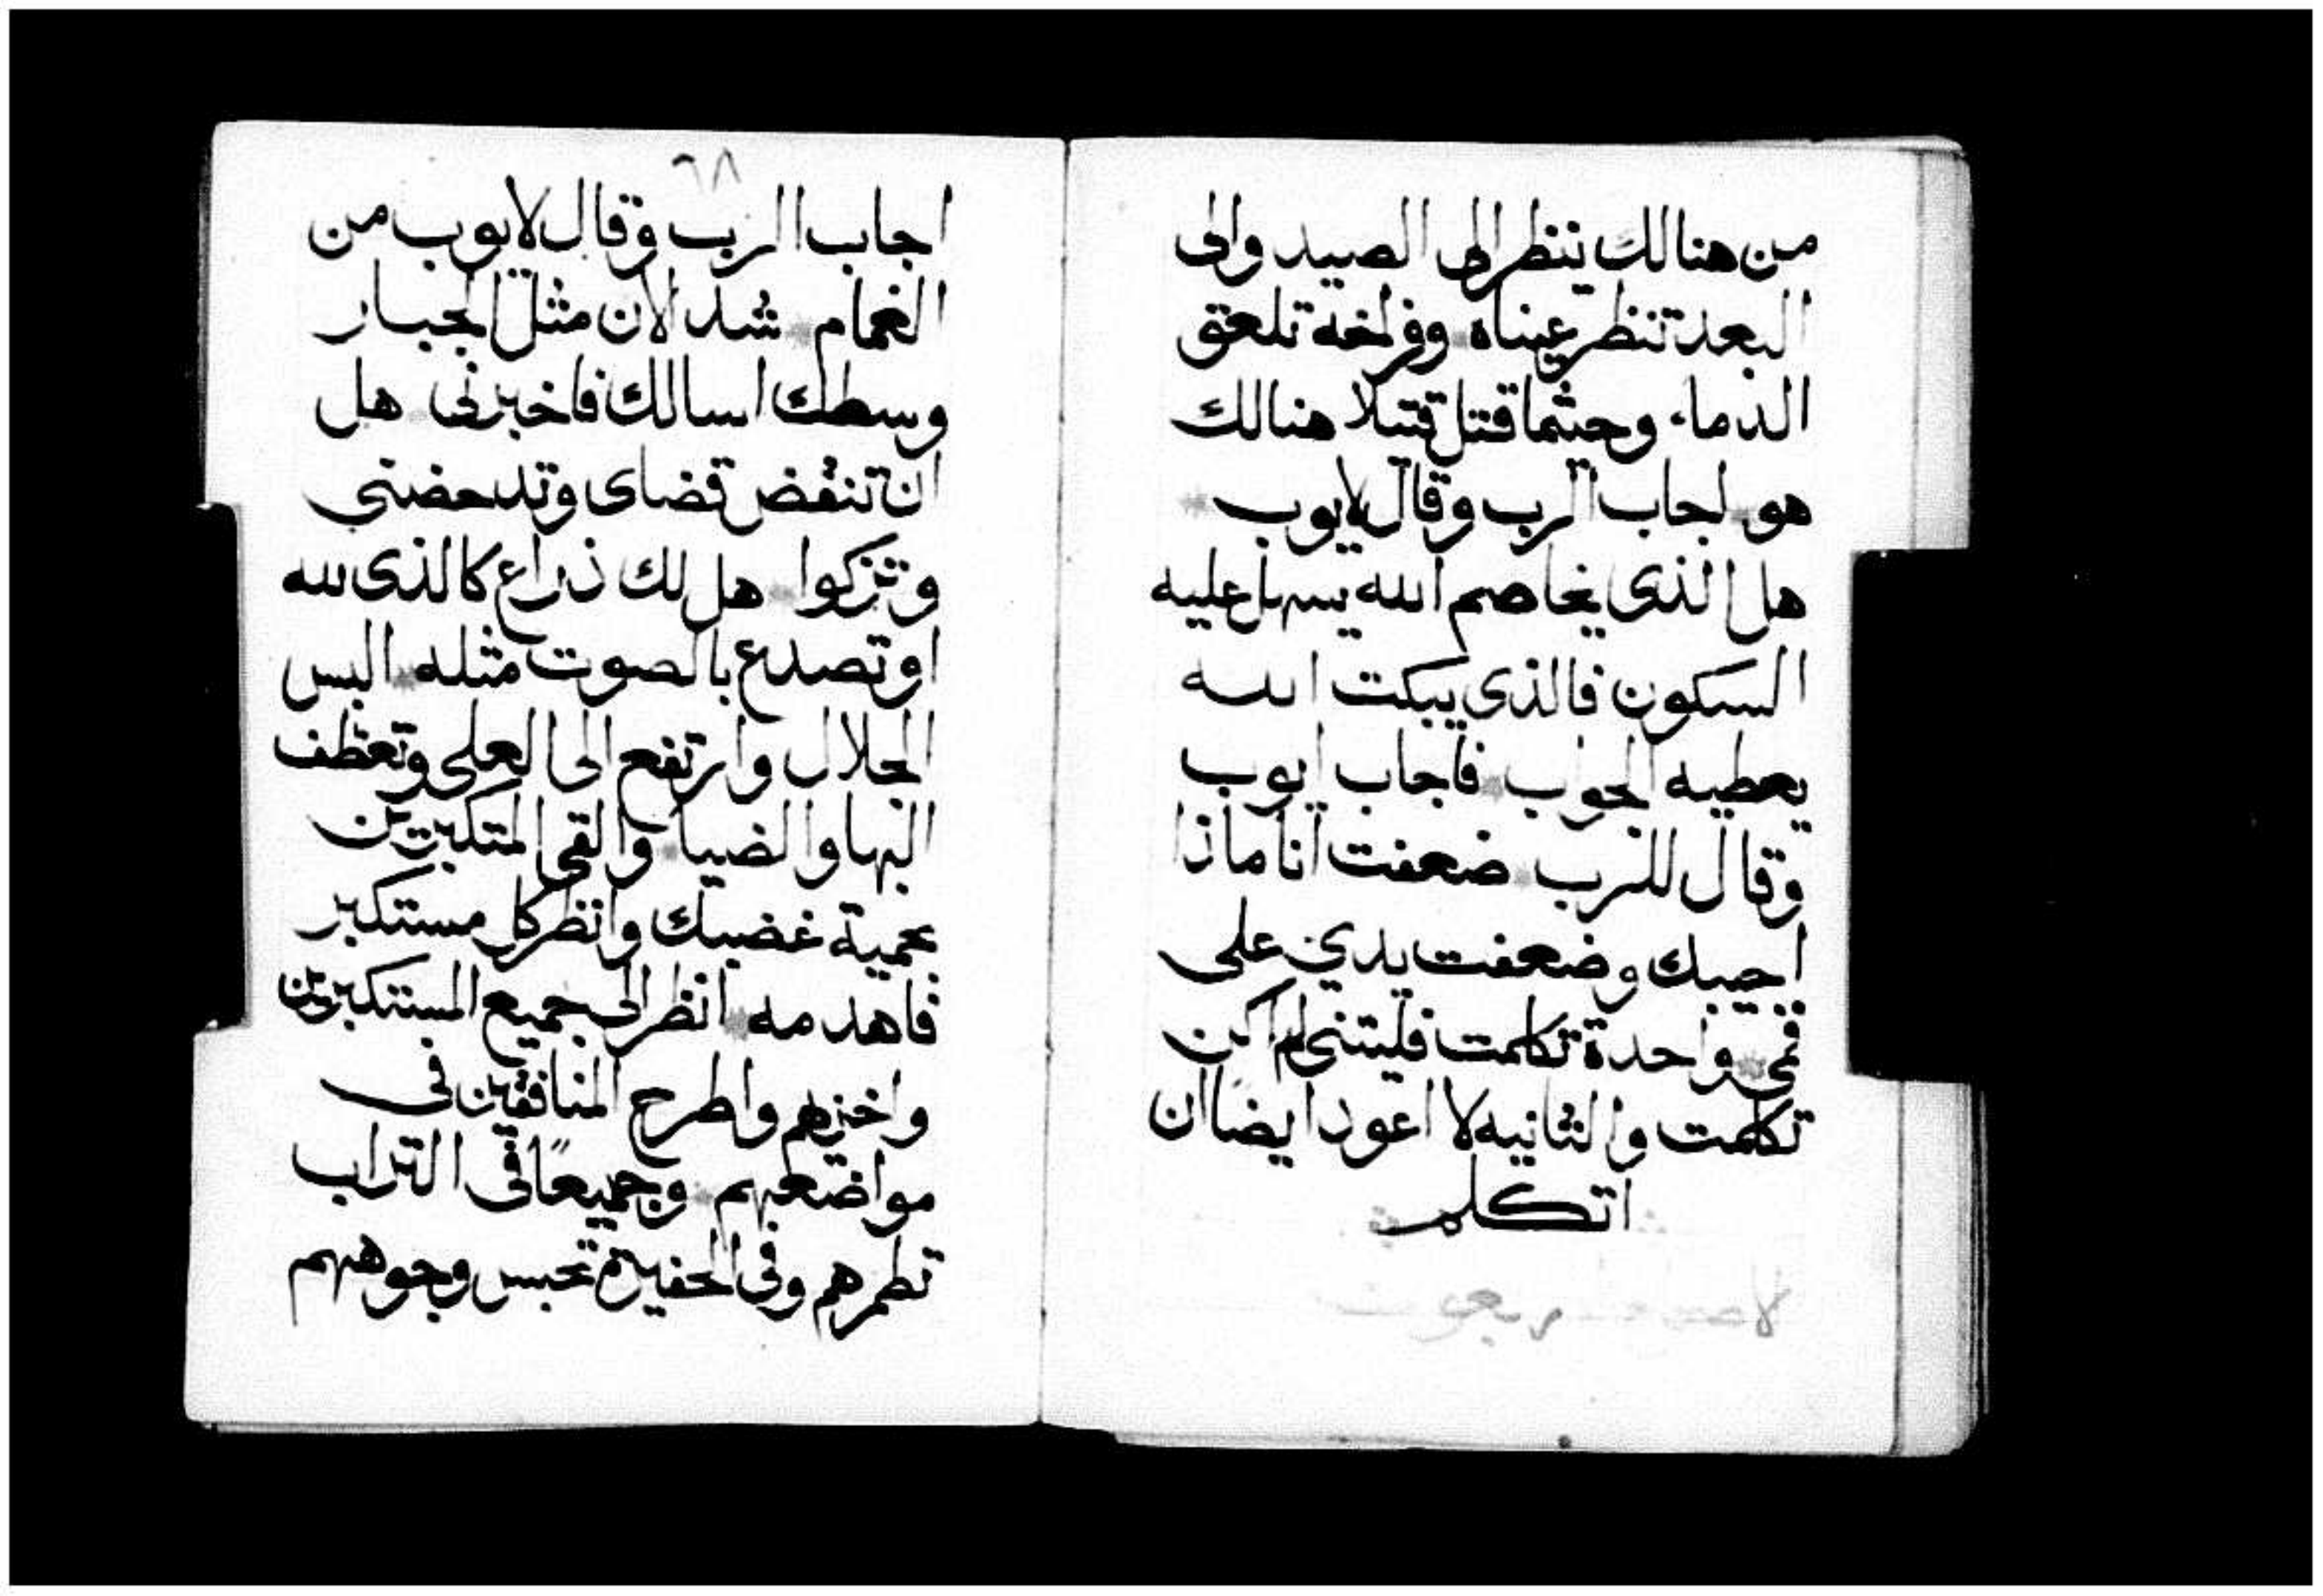 من هنالك ينظر الى الصيد والى
البعد تنظر عيناه وفراخه تلعق
الدماء وحيثما قتل قتيلا هنالك
هو اجاب الرب وقال لايوب
هل الذى يخاصم الله يسهل عليه
السكون فالذى يبكت الله
يعطيه الجواب فاجاب ايوب
وقال للرب ضعفت انا ماذا
اجيبك وضعفت يدي على
فمى واحدة تكلمت فليتنى لم اكن
تكلمت والثانيه لا اعود ايضا ان
اتكلم
٦٨
اجاب الرب وقال لايوب من
الغمام شد الان مثل الجبار
وسطك اسالك فاخبرنى هل
ان تنقض قضاى وتدحضني
وتزكوا هل لك ذراع كالذى لله
او تصدع بالصوت مثله البس
الجلال وارتفع الى العلى وتعطف
البها والضيا والقى المتكبرين
بحمية غضبك وانظر كل مستكبر
فاهدمه انظر الى جميع المستكبرين
واخزهم واطرح المنافقين فى
مواضعهم وجميعًا فى التراب
تطمرهم وفى الحفيرة تحبس وجوههم